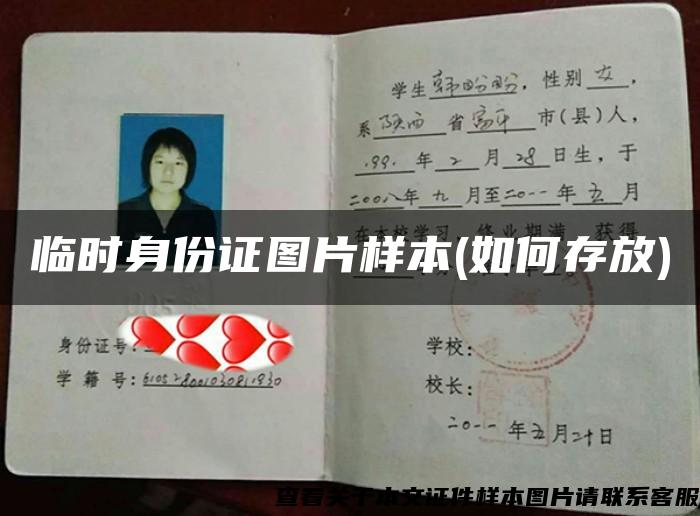 学生韩盼盼，性别女，
系陕西省富平市(县)人，
1991年2月28日生，于
二00八年九月至二0一一年五月
在本校学习，修业期满，获得
临时身份证图片样本(如何存放)
身份证号：
学籍号：
学校：
校长：
二0一一年五月二十日
查看关于本文证件样本图片请联系客服